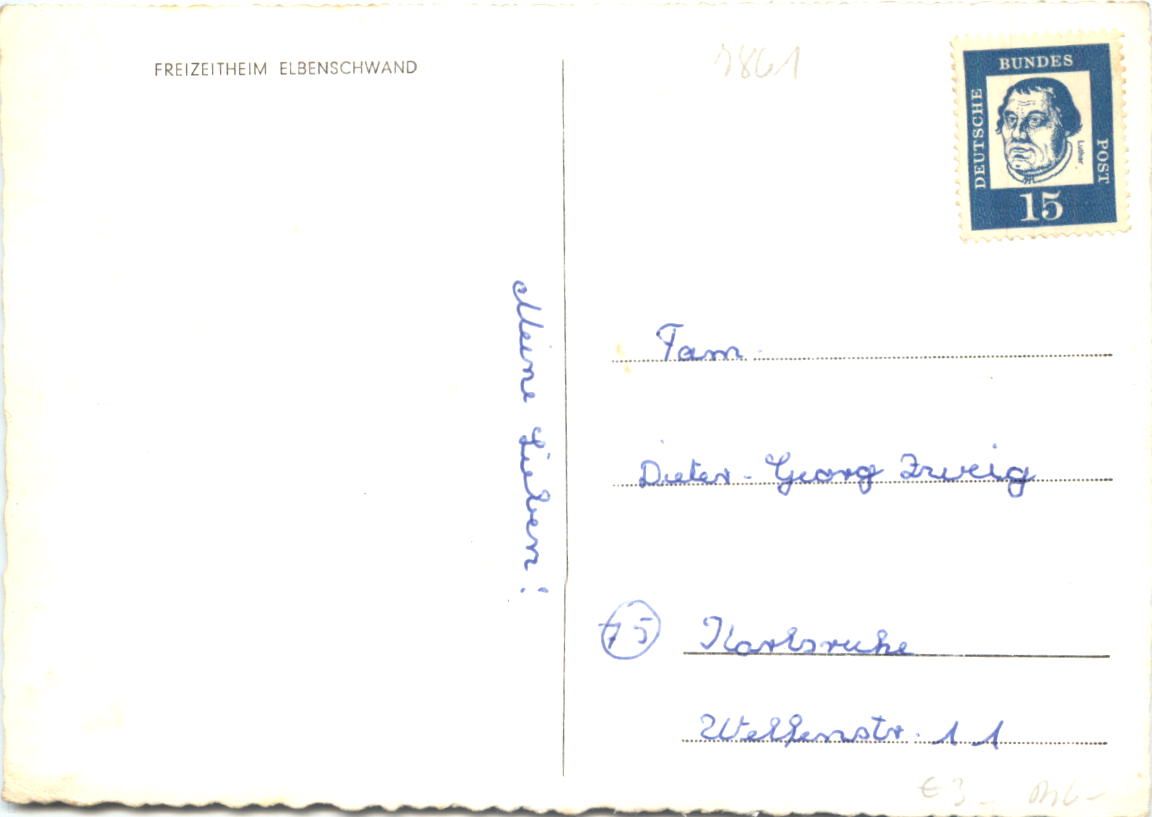 FREIZEITHEIM ELBENSCHWAND
7861
DEUTSCHE
BUNDES
POST
Luther
15
Meine Lieben!
Fam.
Dieter-Georg Zweig
75 Karlsruhe
Welfenstr. 11
€ 3,-